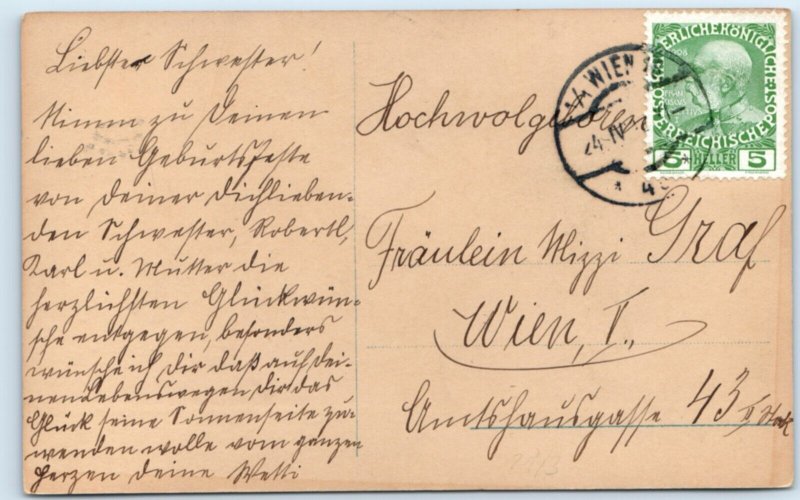 Liebster Schwester!
Nimm zu Deinem
lieben Geburtsfeste
von deiner Dichlieben-
den Schwester, Robertl,
Karl u. Mutter die
herzlichsten Glückwün-
sche entgegen, besonders
wünsche ich Dir daß auf dei-
nen Lebenswegen, Dir das
Glück seine Sonnenseite zu-
wenden wolle vom ganzen
Herzen deine Wetti
Hochwolgeboren
Fräulein Mizzi Graf
Wien, V.,
Amtshausgasse 43 II Stock
WIEN
24. IV
1908
KAISERLICHE KÖNIGLICHE
ÖSTERREICHISCHE POST
5 HELLER 5